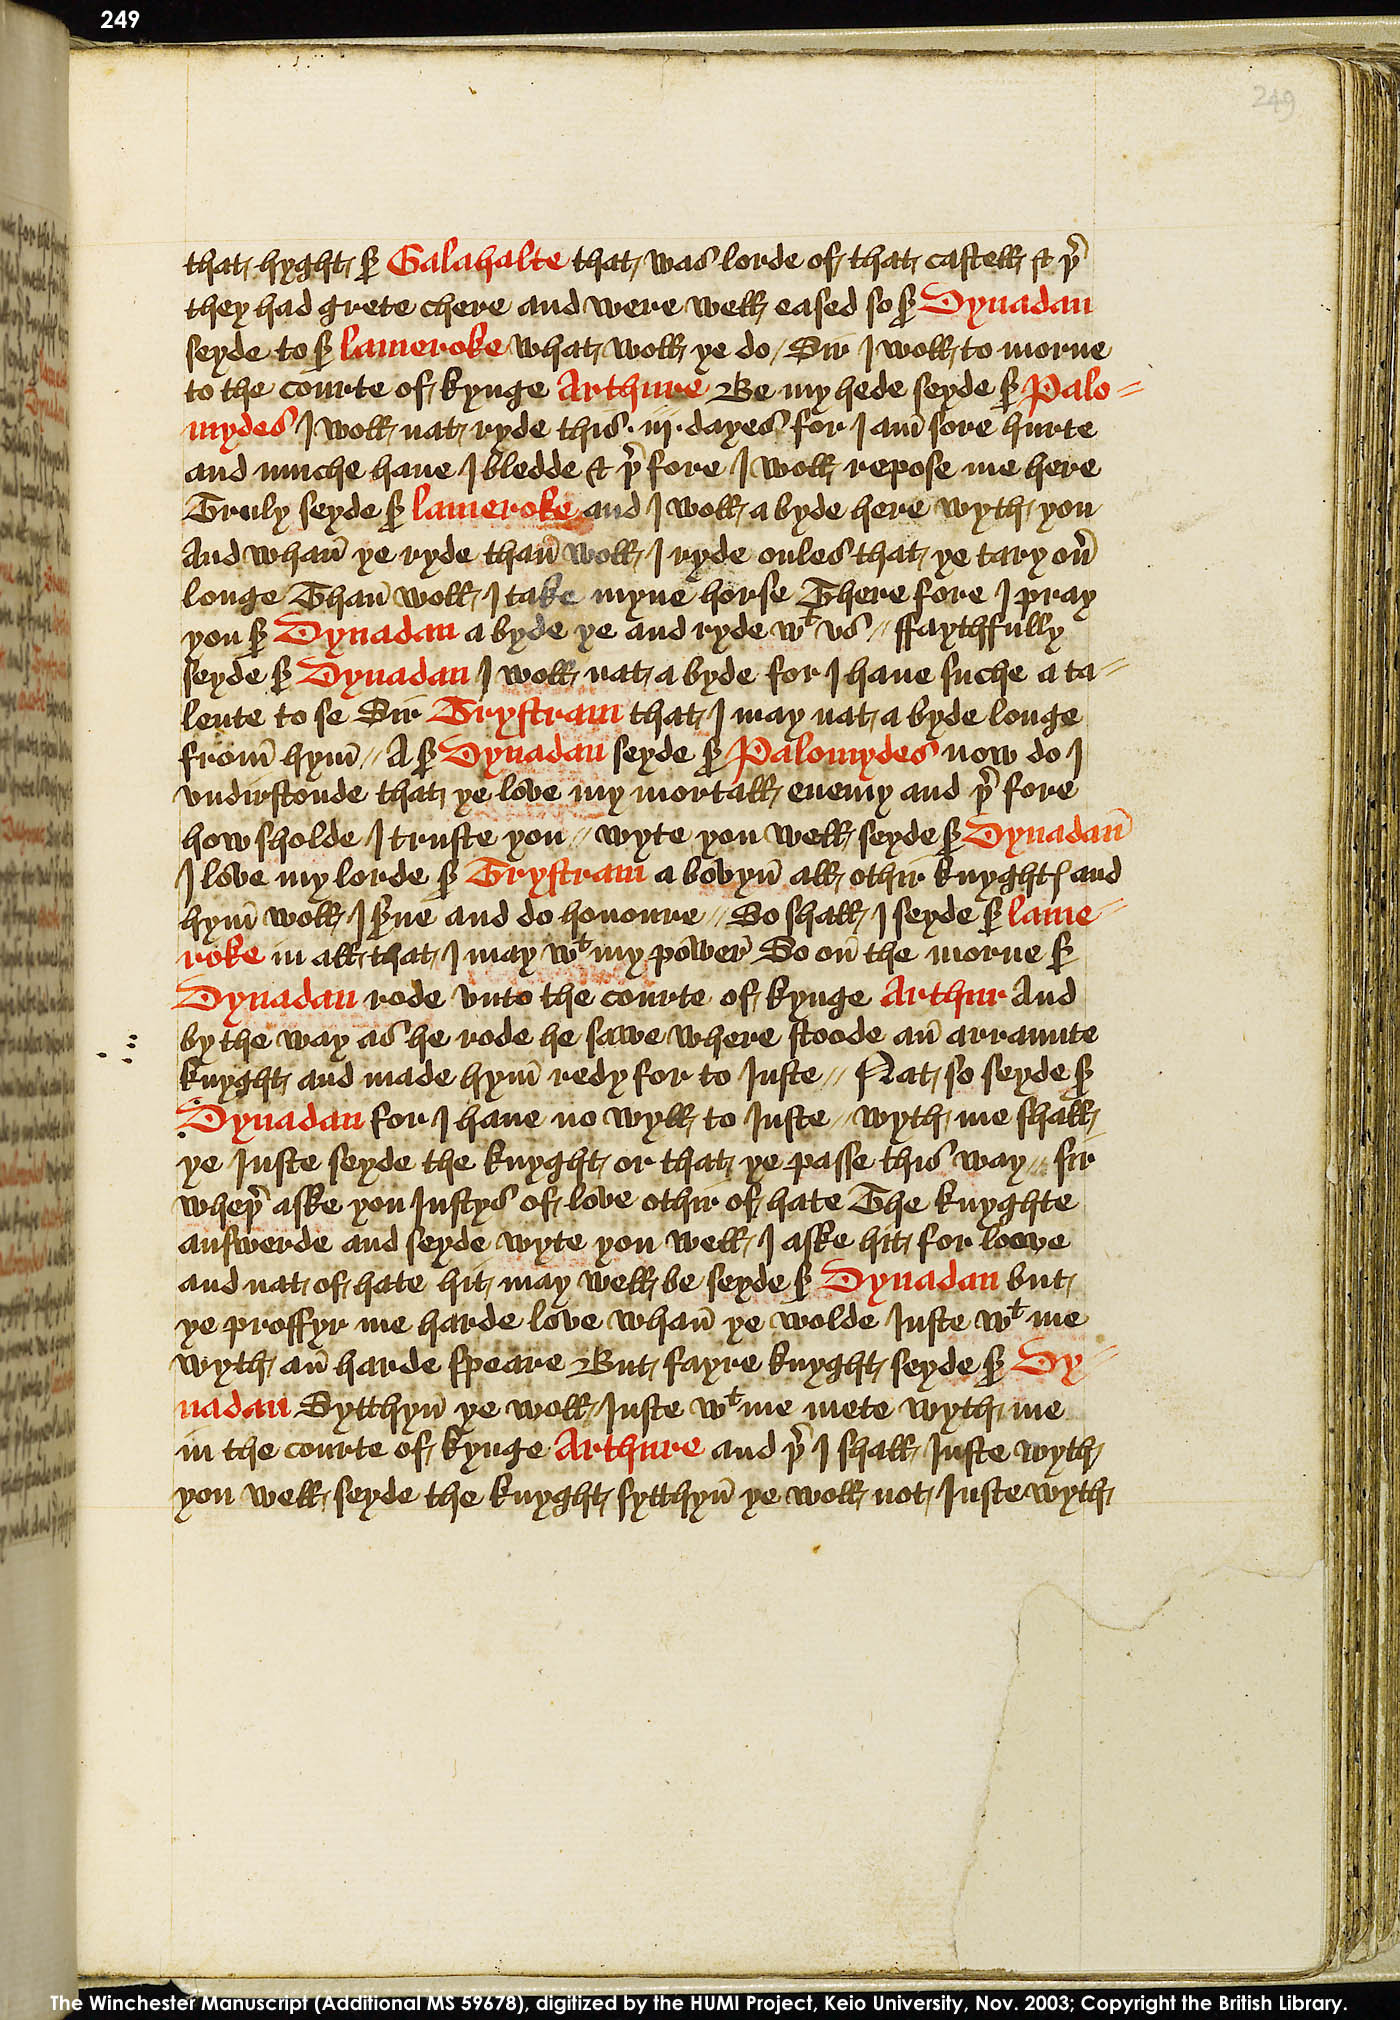 249
249
that hyght sˀ Galahalte that was lorde of that castell & þˀ
they had grete chere and were well eased so sˀ Dynadan
seyde to sˀ lameroke what woll ye do / Sir I woll to morne
to the courte of kynge Arthure Be my hede seyde sˀ Palo=
mydes I woll nat ryde this .iij. dayes for I am̄ sore hurte
and muche haue I bledde & þˀ fore I woll repose me here
Truly seyde sˀ lameroke and I woll a byde here wyth you
And whan̄ ye ryde than̄ woll I ryde onles that ye tary oūˀ
longe Than̄ woll I take myne horse There fore I pray
you sˀ Dynadan a byde ye and ryde wᵗ vs // ffaythffully
seyde sˀ Dynadan I woll nat a byde for I haue suche a ta=
lente to se Sir Trystram that I may nat a byde longe
from̄ hym̄ // A sˀ Dynadan seyde sˀ Palomydes now do I
vndirstonde that ye love my mortall enemy and þˀ fore
how sholde I truste you // wyte you well seyde sˀ Dynadan̄
I love my lorde sˀ Trystram a bovyn̄ all othir knyghtꝭ and
hym̄ woll I sˀue and do honoure // So shall I seyde sˀ lame=
roke in all that I may wᵗ my powerˀ So on̄ the morne sˀ
Dynadan rode vnto the courte of kynge Arthur And
by the way as he rode he sawe where stoode an̄ arraunte
knyght and made hym̄ redy for to Iuste // Nat so seyde sˀ
Dynadan for I haue no wyll to Iuste // wyth me shall
ye Iuste seyde the knyght or that ye passe this way // sir
wheþˀ aske you Iustys of love othir of hate The knyghte
answerde and seyde wyte you well I aske hit for loove
and nat of hate hit may well be seyde sˀ Dynadan but
ye proffyr me harde love whan̄ ye wolde Iuste wᵗ me
wyth an̄ harde speare But fayre knyght seyde sˀ Dy=
nadan Sytthyn̄ ye woll Iuste wᵗ me mete wyth me
in the courte of kynge Arthure and þˀ I shall Iuste wyth
you well seyde the knyght sytthyn̄ ye woll not Iuste wyth
The Winchester Manuscript (Additional MS 59678), digitized by the HUMI Project, Keio University, Nov. 2003; Copyright the British Library.